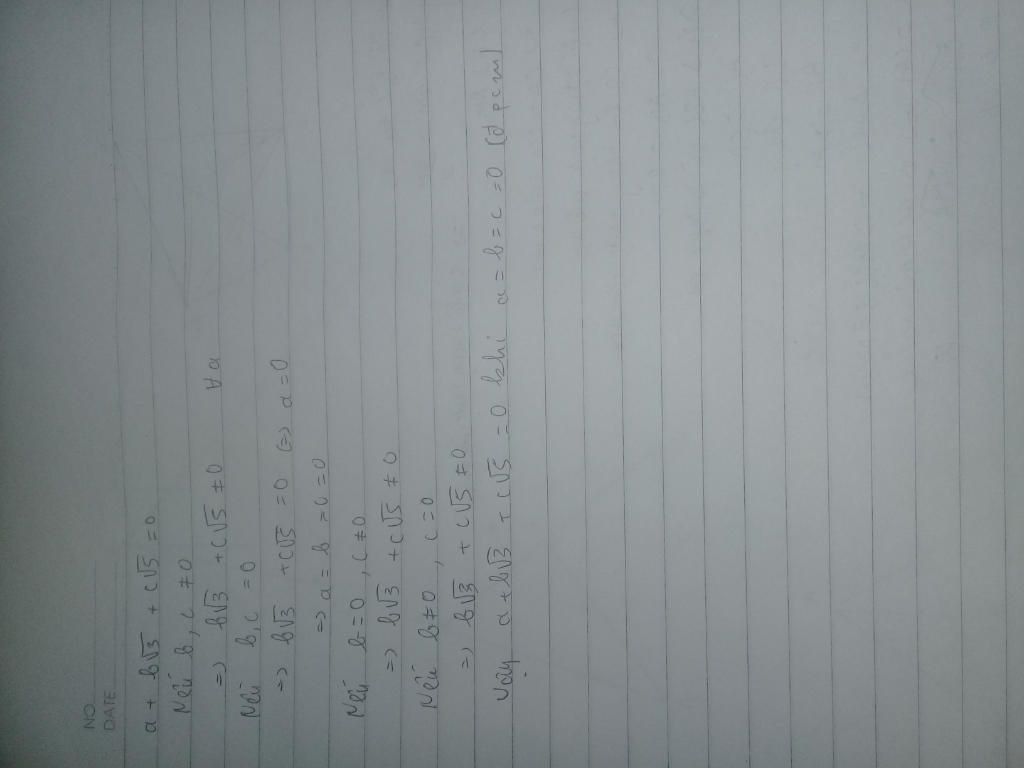 NO.
DATE
a + b√3 + c√5 = 0
Nếu b, c ≠ 0
=> b√3 + c√5 ≠ 0 ∀a
Nếu b, c = 0
=> b√3 + c√5 = 0 (=) a = 0
=> a = b = c = 0
Nếu b = 0, c ≠ 0
=> b√3 + c√5 ≠ 0
Nếu b ≠ 0, c = 0
=> b√3 + c√5 ≠ 0
Vậy a + b√3 + c√5 = 0 khi a = b = c = 0 (đpcm)